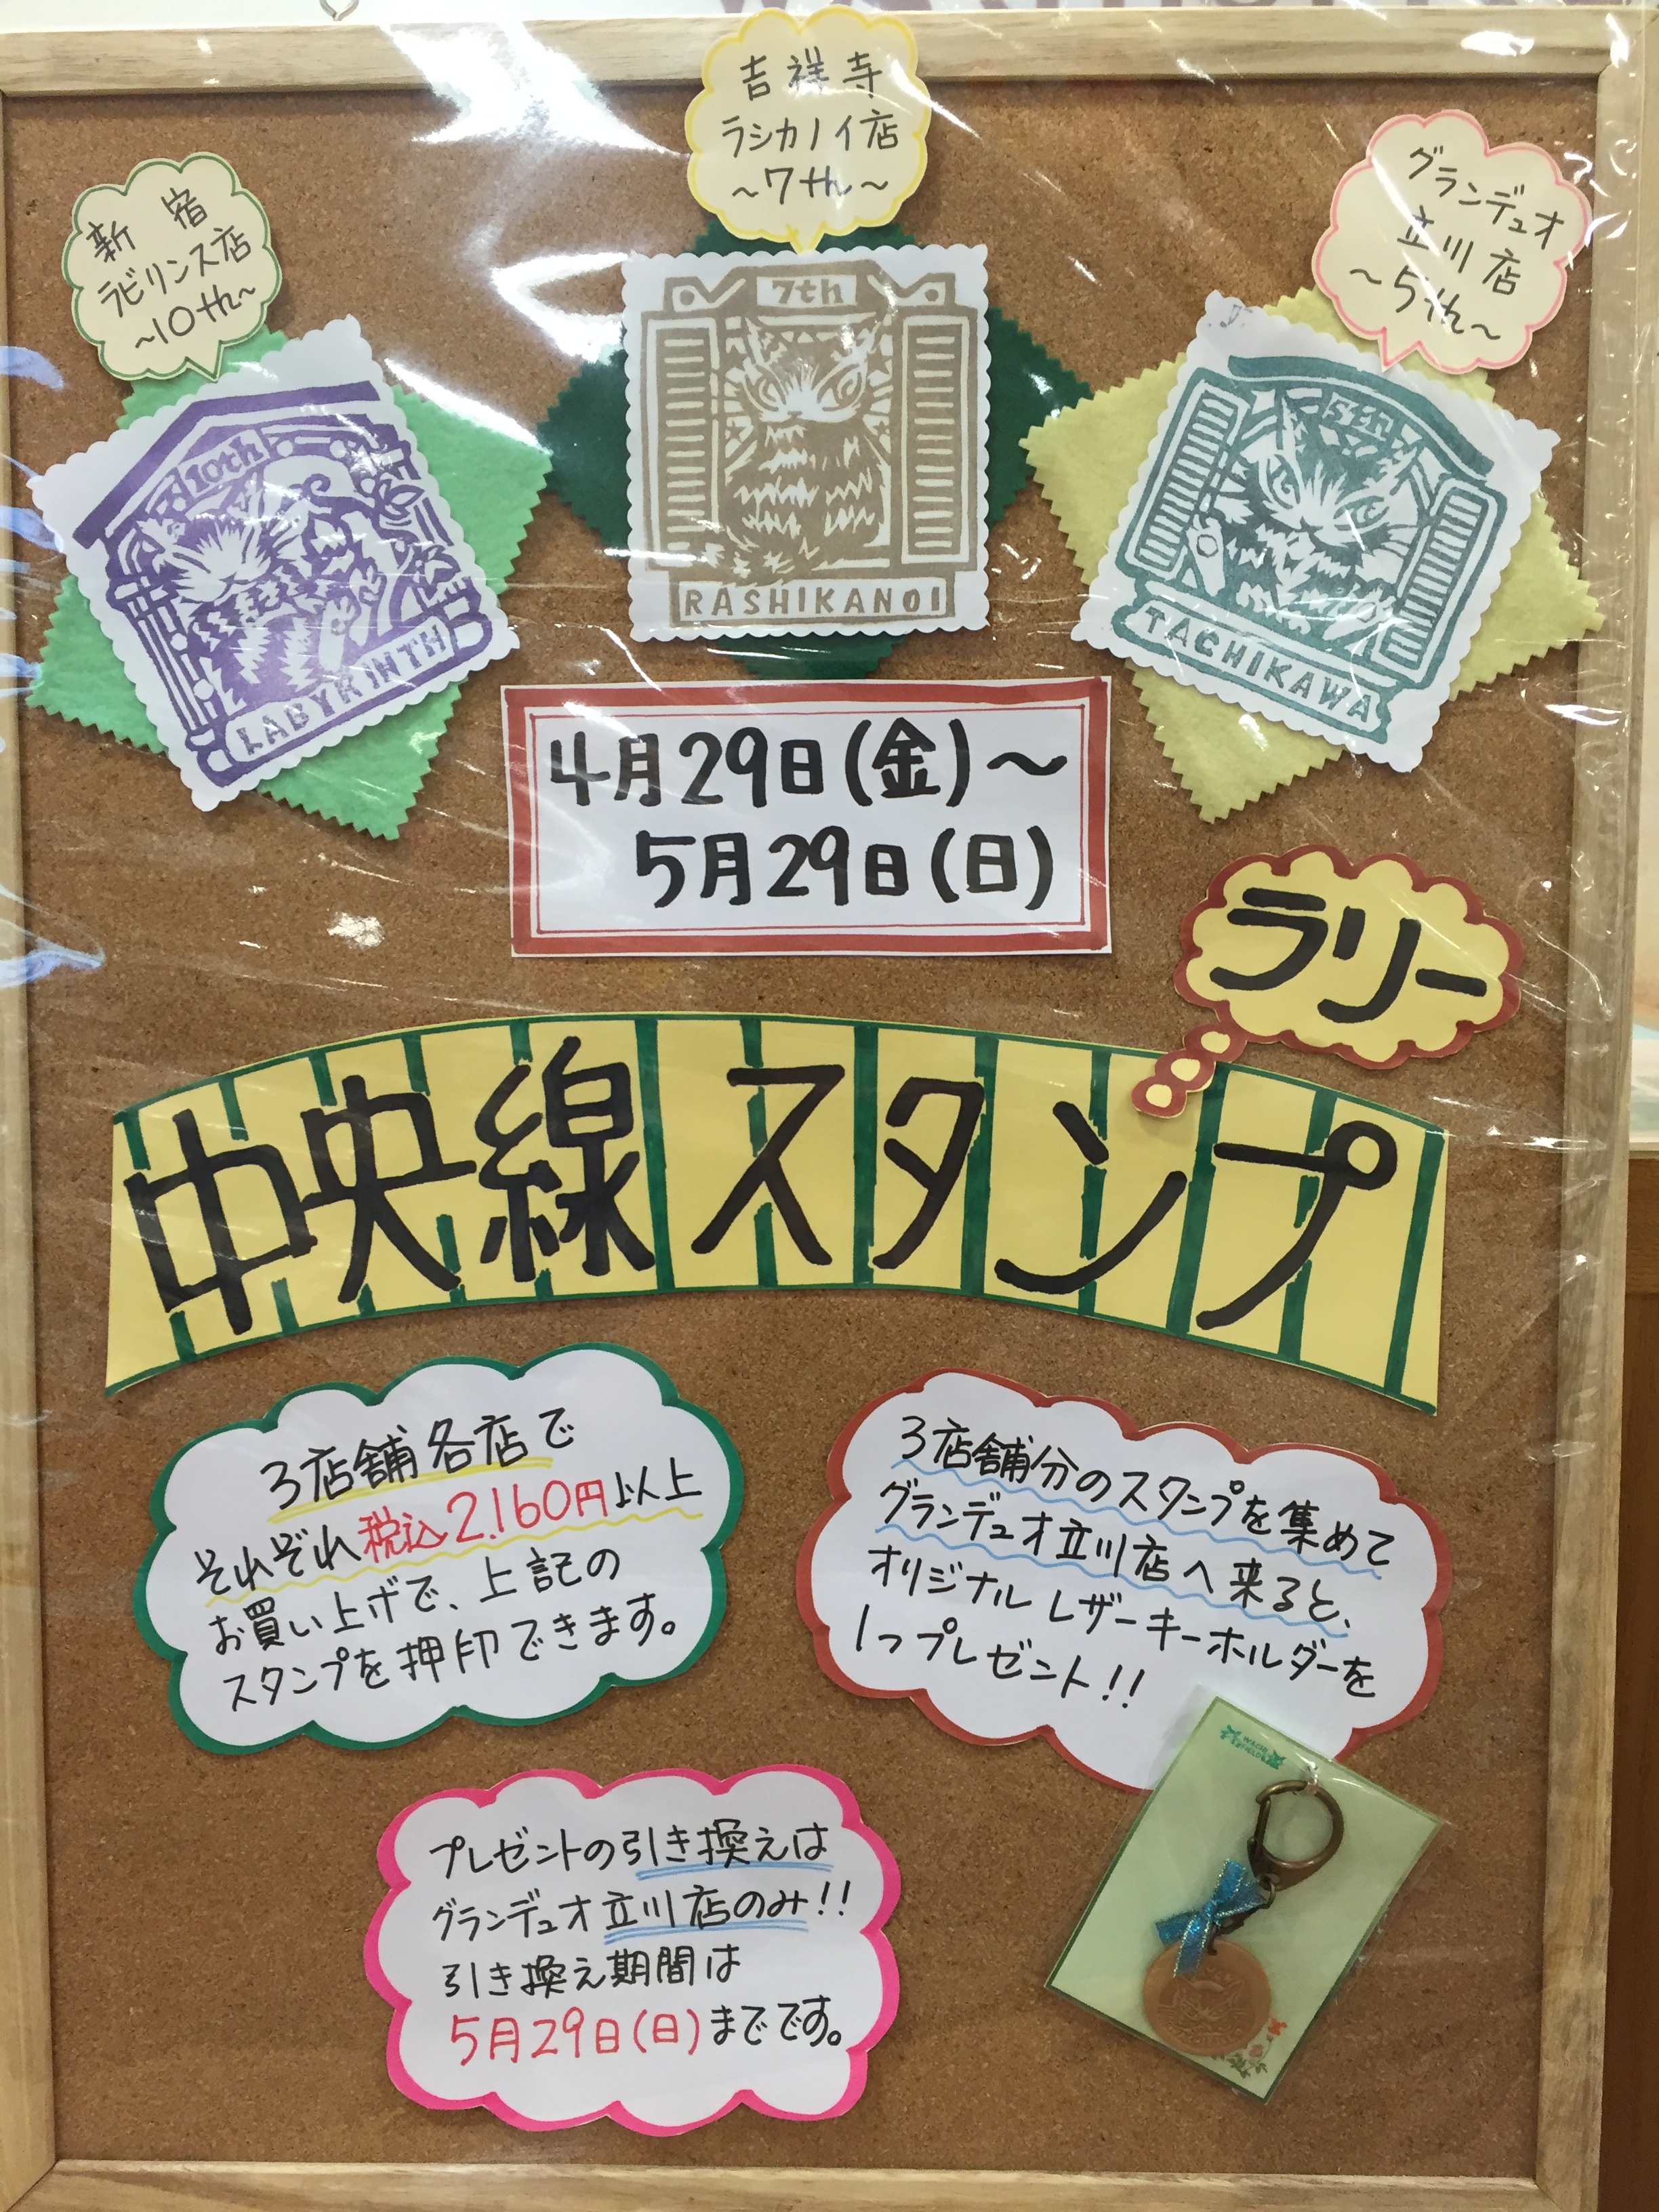 吉祥寺
ラシカノイ店
～7th～
新宿
ラビリンス店
～10th～
グランデュオ
立川店
～5th～
10th
LABYRINTH
7th
RASHIKANOI
5th
TACHIKAWA
4月29日(金)～
5月29日(日)
中央線スタンプ
ラリー
3店舗各店で
それぞれ税込2.160円以上
お買い上げで、上記の
スタンプを押印できます。
3店舗分のスタンプを集めて
グランデュオ立川店へ来ると、
オリジナルレザーキーホルダーを
1つプレゼント!!
プレゼントの引き換えは
グランデュオ立川店のみ!!
引き換え期間は
5月29日(日)までです。